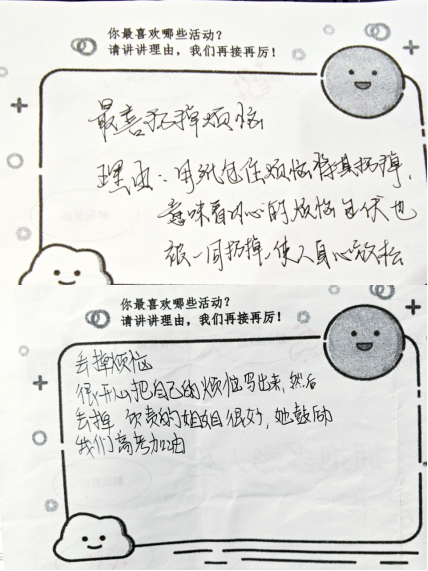 你最喜欢哪些活动?
请讲讲理由，我们再接再厉!
最喜扔掉烦恼
理由：用纸包住烦恼将其扔掉，
意味着内心的烦恼忧伤也
被一同扔掉，使人身心放松
你最喜欢哪些活动?
请讲讲理由，我们再接再厉!
丢掉烦恼
很开心把自己的烦恼写出来，然后
丢掉 负责的姐姐很好，她鼓励
我们高考加油